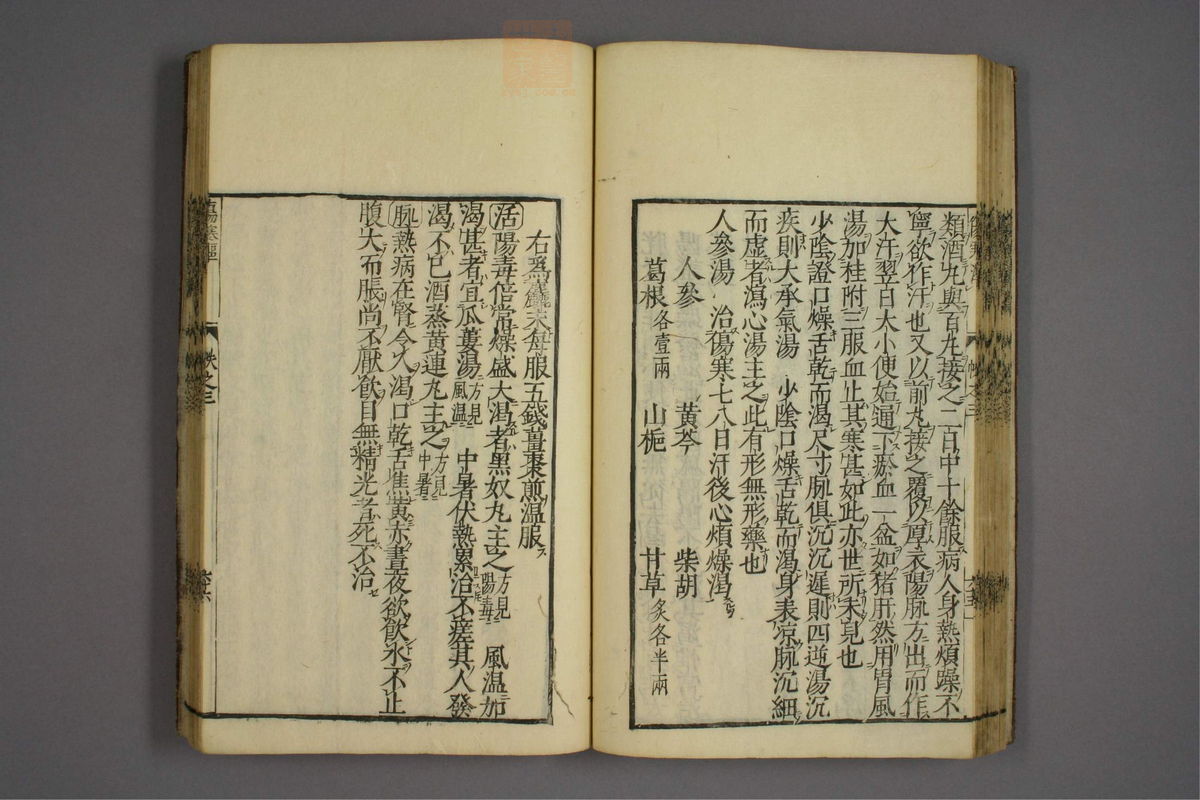 類酒丸與百丸接之二日中十餘服病人身熱煩躁不
寧欲作汗也又以前丸接之覆以厚衣陽脉方出而作
大汗翌日大小便始通下瘀血一盆如猪肝然用胃風
湯加桂附三服血止其寒甚如此亦世所未見也
少陰證口燥舌乾而渴尺寸脉俱沉沉遲則四逆湯沉
疾則大承氣湯 少陰口燥舌乾而渴身表凉脉沉細
而虚者瀉心湯主之此有形無形藥也
人參湯 治傷寒七八日汗後心煩燥渴
人參 黃芩 柴胡
葛根各壹兩 山梔 甘草炙各半兩
右爲麄末每服五錢薑棗煎温服
活陽毒倍常燥盛大渴者黑奴丸主之方見陽毒 風温加
渴甚者宜瓜蔞湯方見風温 中暑伏熱累治不瘥其人發
渴不已酒蒸黃連丸主之方見中暑
脉熱病在腎令人渴口乾舌焦黃赤晝夜欲飲水不止
腹大而脹尚不厭飲目無精光者死不治